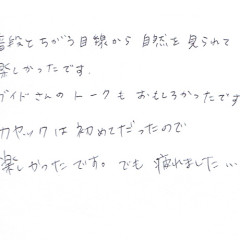 普段とちがう目線から自然を見られて
楽しかったです.
ガイドさんのトークもおもしろかったです
カヤックは初めてだったので
楽しかったです。でも疲れました…